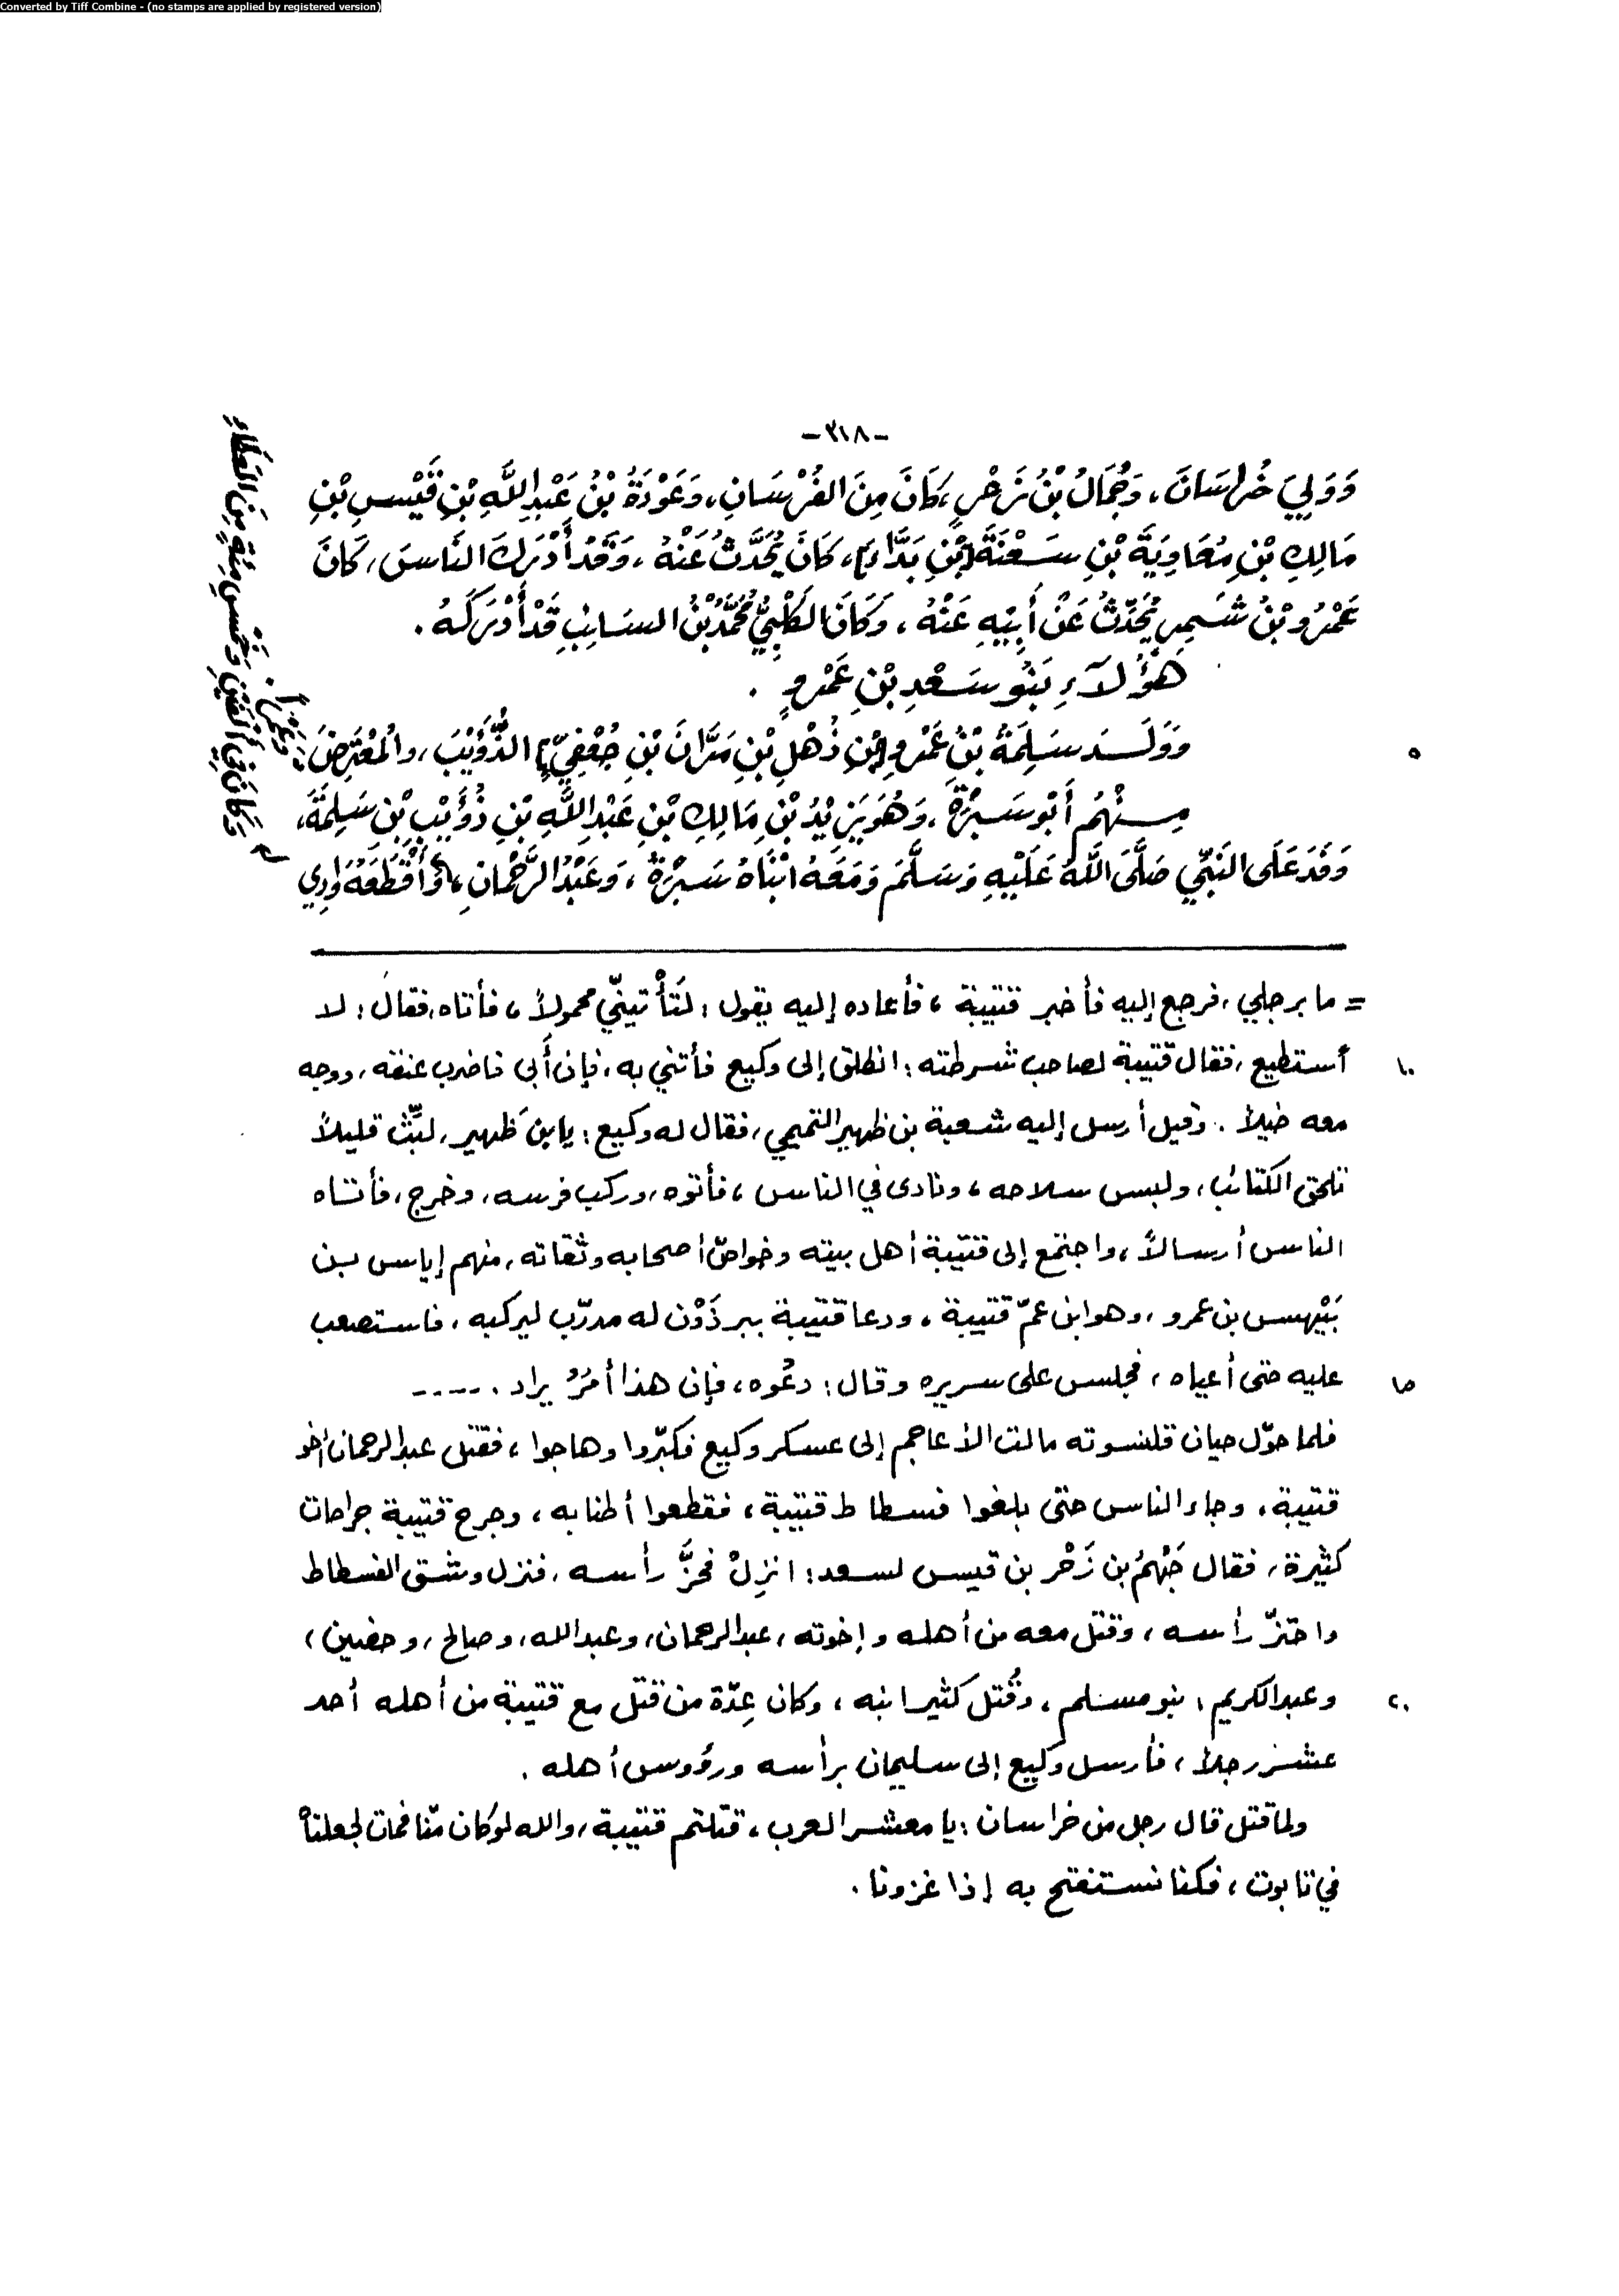 Converted by Tiff Combine - (no stamps are applied by registered version)
-٣١٨-
وَوَلِيَ خُرَاسَانَ، وَجَمَالُ بْنُ زَحْرٍ، كَانَ مِنَ الفُرْسَانِ، وَعَوْذَةُ بْنُ عَبْدِ اللَّهِ بْنِ قَيْسِ بْنِ
مَالِكِ بْنِ مُعَاوِيَةَ بْنِ سَعْنَةَ [بْنِ بَدَّاءَ]، كَانَ يُحَدَّثُ عَنْهُ، وَقَدْ أَدْرَكَ النَّاسَ، كَانَ
عَمْرُو بْنُ شَمِرٍ يُحَدِّثُ عَنْ أَبِيْهِ عَنْهُ، وَكَانَ الكَلْبِيُّ مُحَمَّدُ بْنُ السَائِبِ قَدْ أَدْرَكَهُ.
هَؤُلَاءِ بَنُو سَعْدِ بْنِ عَمْرٍو.
وَوَلَدَ سَلِمَةُ بْنُ عَمْرِو [بْنِ ذُهْلِ بْنِ مَرَّانَ بْنِ جُعْفِيٍّ] الذُّؤَيْبَ، والمُعْتَرِضَ، وَعَمْراً.
٥
مِنْهُم أَبُو سَبْرَةَ، وَهُوَ يَزِيْدُ بْنِ مَالِكِ بْنِ عَبْدِ اللَّهِ بْنِ ذُؤَيْبِ بْنِ سَلِمَةَ،
وَفَدَ عَلَى النَّبِيِّ صَلَّى اللَّهُ عَلَيْهِ وَسَلَّمَ وَمَعَهُ ابْنَاهُ سَبْرَةُ، وَعَبْدُ الرَّحْمَانِ، وَأَقْطَعَهُ وَادِي
وَكَانَ فِي أَلْفَيْنِ وَخَمْسِ مِئَةٍ مِنَ العَطَاءِ
= ما برجلي، فرجع إليه فأخبر قتيبة، فأعاده إليه يقول: لتَأْتينّي محمولاً، فأتاه، فقال: لا
أستطيع، فقال قتيبة لصاحب شرطته: انطلق إلى وكيع فأتني به، فإن أَبى فاضرب عنقه، ووجه
١٠
معه خيلاً. وقيل أرسل إليه شعبة بن ظهير التميمي، فقال له وكيع: يا بن ظهير، لبِّث قليلاً
تلحق الكتائب، ولبس سلاحه، ونادى في الناس، فأتوه، وركب فرسه، وخرج، فأتاه
الناس أرسالاً، واجتمع إلى قتيبة أهل بيته وخواصّ أصحابه وثقاته، منهم إياس بن
بَيْهس بن عمرو، وهو ابن عمّ قتيبة، ودعا قتيبة ببرذَوْن له مدرّب ليركبه، فاستصعب
عليه حتى أعياه، فجلس على سريره وقال: دعُوه، فإن هذا أمرُ يراد. -----
١٥
فلما حوّل حيان قلنسوته مالت الأعاجم إلى عسكر وكيع فكبّروا وهاجوا، فقتل عبد الرحمان أخو
قتيبة، وجاء الناس حتى بلغوا فسطاط قتيبة، فقطعوا أطنابه، وجرح قتيبة جراحات
كثيرة، فقال جَهْمُ بن زَحْر بن قيس لسعد: انزِلْ فحزَّ رأسه، فنزل وشق الفسطاط
واحتزّ رأسه، وقتل معه من أهله وإخوته، عبد الرحمان، وعبد الله، وصالح، وحضين،
وعبد الكريم، بنو مسلم، وقُتل كثير ابنه، وكان عِدّة من قتل مع قتيبة من أهله أحد
٢٠
عشر رجلاً، فأرسل وكيع إلى سليمان برأسه ورؤوس أهله.
ولما قتل قال رجل من خراسان: يا معشر العرب، قتلتم قتيبة، والله لو كان منّا فمات لجعلناه
في تابوت، فكنا نستفتح به إذا غزونا.